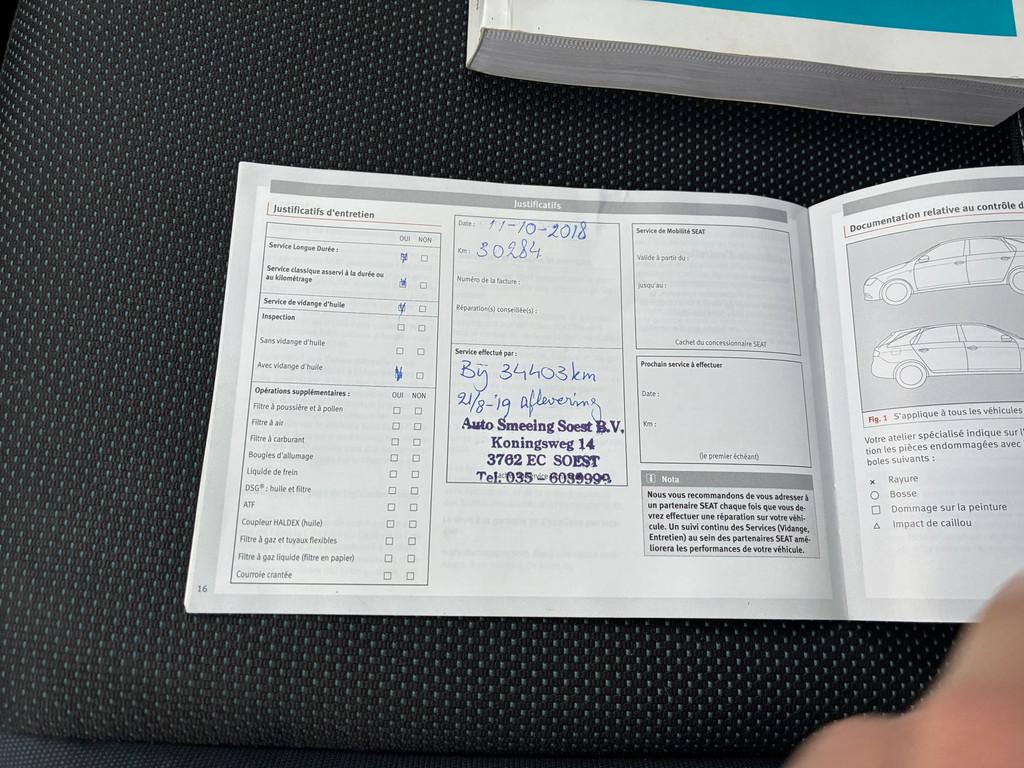 Justificatifs
Justificatifs d'entretien
OUI NON
Service Longue Durée :
Service classique asservi à la durée ou
au kilométrage
Service de vidange d'huile
Inspection
Sans vidange d'huile
Avec vidange d'huile
Opérations supplémentaires : OUI NON
Filtre à poussière et à pollen
Filtre à air
Filtre à carburant
Bougies d'allumage
Liquide de frein
DSG® : huile et filtre
ATF
Coupleur HALDEX (huile)
Filtre à gaz et tuyaux flexibles
Filtre à gaz liquide (filtre en papier)
Courroie crantée
16
Date : 11-10-2018
Km : 30284
Numéro de la facture :
Réparation(s) conseillée(s) :
Service effectué par :
Bij 34403km
21/8-'19 aflevering
Auto Smeeing Soest B.V.
Koningsweg 14
3762 EC SOEST
Tel. 035 - 6039999
Service de Mobilité SEAT
Valide à partir du :
jusqu'au :
Cachet du concessionnaire SEAT
Prochain service à effectuer
Date :
Km :
(le premier échéant)
Nota
Nous vous recommandons de vous adresser à
un partenaire SEAT chaque fois que vous de-
vrez effectuer une réparation sur votre véhi-
cule. Un suivi continu des Services (Vidange,
Entretien) au sein des partenaires SEAT amé-
liorera les performances de votre véhicule.
Documentation relative au contrôle
Fig. 1 S'applique à tous les véhicules
Votre atelier spécialisé indique sur
tion les pièces endommagées avec
boles suivants :
× Rayure
○ Bosse
□ Dommage sur la peinture
△ Impact de caillou